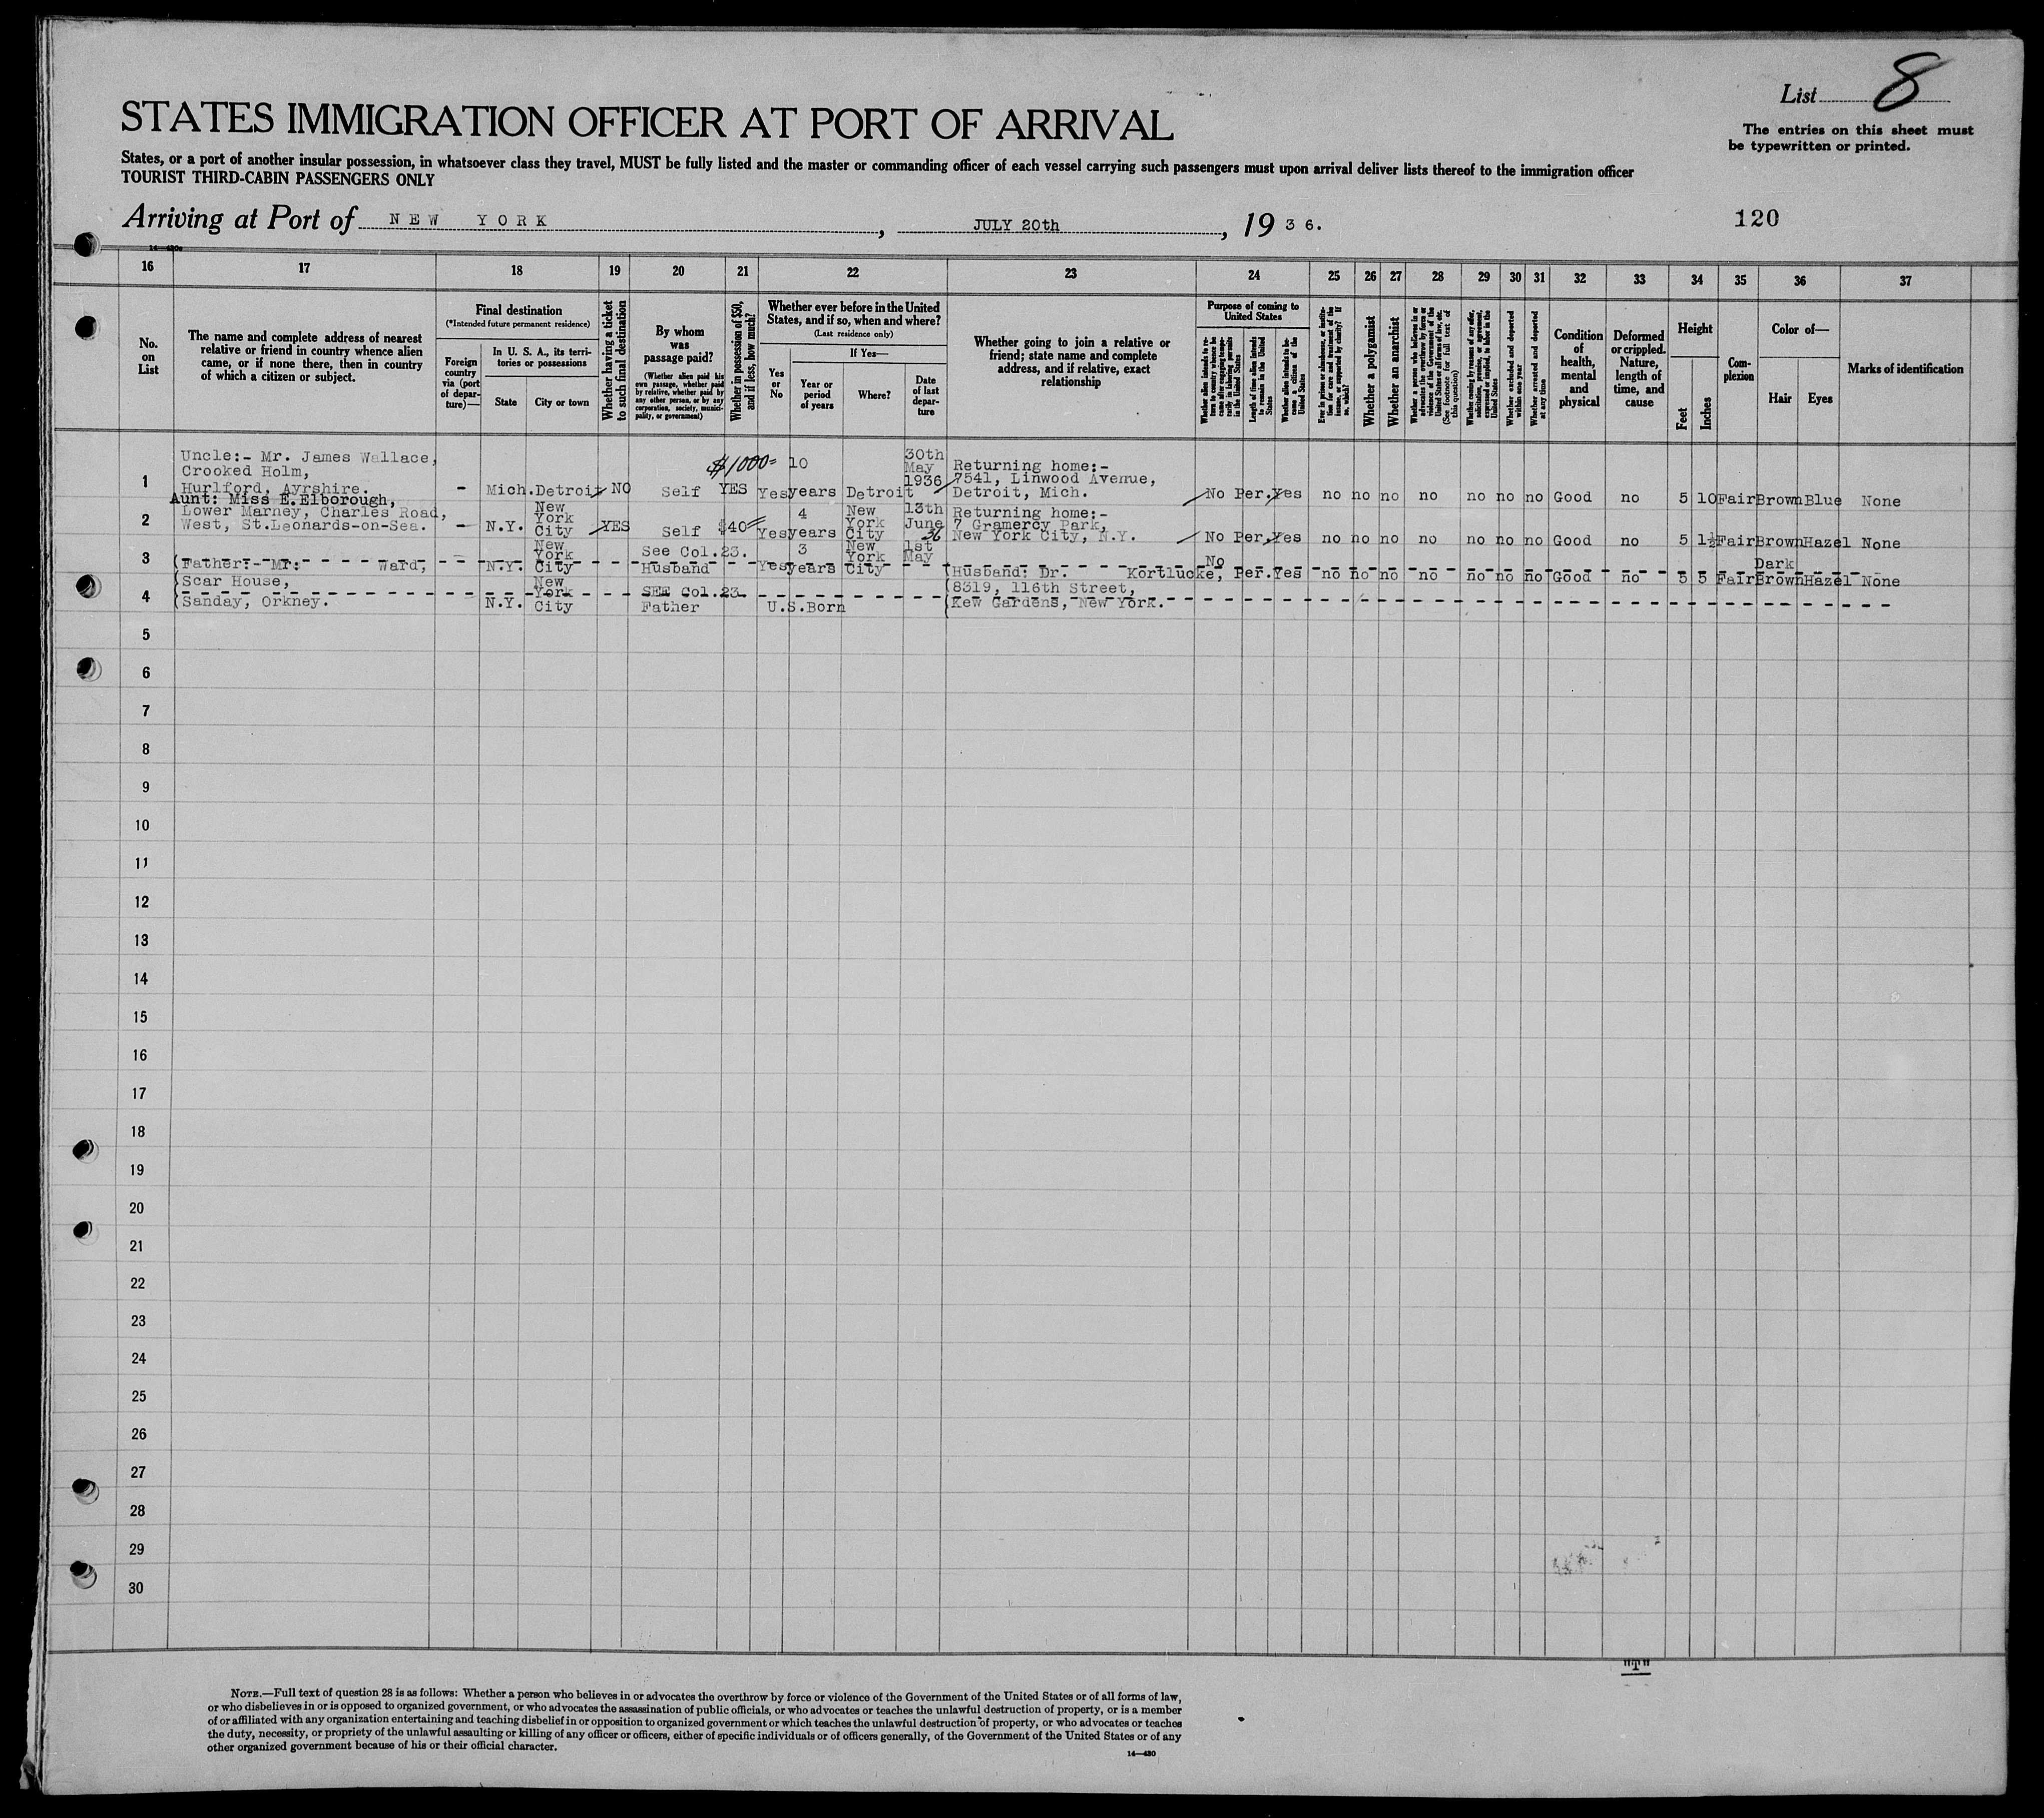 List 8
The entries on this sheet must
be typewritten or printed.
STATES IMMIGRATION OFFICER AT PORT OF ARRIVAL
States, or a port of another insular possession, in whatsoever class they travel, MUST be fully listed and the master or commanding officer of each vessel carrying such passengers must upon arrival deliver lists thereof to the immigration officer
TOURIST THIRD-CABIN PASSENGERS ONLY
Arriving at Port of NEW YORK, JULY 20th, 1936.
120
16 17 18 19 20 21 22 23 24 25 26 27 28 29 30 31 32 33 34 35 36 37
No.
on
List
The name and complete address of nearest
relative or friend in country whence alien
came, or if none there, then in country
of which a citizen or subject.
Final destination
(*Intended future permanent residence)
Foreign
country
via (port
of depar-
ture)—
In U. S. A., its terri-
tories or possessions
State
City or town
Whether having a ticket
to such final destination
By whom
was
passage paid?
(Whether alien paid his
own passage, whether paid
by relative, whether paid by
any other person, or by any
corporation, society, munici-
pality, or government)
Whether in possession of $50,
and if less, how much?
Whether ever before in the United
States, and if so, when and where?
(Last residence only)
Yes
or
No
If Yes—
Year or
period
of years
Where?
Date
of last
depar-
ture
Whether going to join a relative or
friend; state name and complete
address, and if relative, exact
relationship
Purpose of coming to
United States
Whether alien intends to re-
turn to country whence he
came after engaging tempo-
rarily in laboring pursuits
in the United States
Length of time alien intends
to remain in the United
States
Whether alien intends to be-
come a citizen of the
United States
Ever in prison or almshouse, or institu-
tion for care and treatment of the
insane, or supported by charity? If
so, which?
Whether a polygamist
Whether an anarchist
Whether a person who believes in or
advocates the overthrow by force or
violence of the Government of the
United States or all forms of law, etc.
(See footnote for full text of
this question)
Whether coming by reason of any offer,
solicitation, promise, or agreement,
expressed or implied, to labor in the
United States
Whether excluded and deported
within one year
Whether arrested and deported
at any time
Condition
of
health,
mental
and
physical
Deformed
or crippled.
Nature,
length of
time, and
cause
Height
Feet
Inches
Com-
plexion
Color of—
Hair
Eyes
Marks of identification
1
Uncle:- Mr. James Wallace,
Crooked Holm,
Hurlford, Ayrshire.
- Mich. Detroit NO Self $1000 YES Yes 10
years Detroit 30th
May
1936
Returning home:-
7541, Linwood Avenue,
Detroit, Mich.
No Per. Yes no no no no no no no Good no 5 10 Fair Brown Blue None
2
Aunt: Miss E.Elborough,
Lower Marney, Charles Road,
West, St.Leonards-on-Sea.
- N.Y. New
York
City YES Self $40 Yes 4
years New
York
City 13th
June
36
Returning home:-
7 Gramercy Park,
New York City, N.Y.
No Per. Yes no no no no no no no Good no 5 1½ Fair Brown Hazel None
3
(Father:- Mr. Ward,
N.Y. New
York
City See Col.23.
Husband Yes 3
years New
York
City 1st
May
(Husband: Dr. Kortlucke,
No Per. Yes no no no no no no no Good no 5 5 Fair Dark
Brown Hazel None
4
(Scar House,
(Sanday, Orkney.
N.Y. New
York
City SEE Col.23.
Father U.S.Born
(8319, 116th Street,
(Kew Gardens, New York.
5
6
7
8
9
10
11
12
13
14
15
16
17
18
19
20
21
22
23
24
25
26
27
28
29
30
"T"
NOTE.—Full text of question 28 is as follows: Whether a person who believes in or advocates the overthrow by force or violence of the Government of the United States or of all forms of law,
or who disbelieves in or is opposed to organized government, or who advocates the assassination of public officials, or who advocates or teaches the unlawful destruction of property, or is a member
of or affiliated with any organization entertaining and teaching disbelief in or opposition to organized government or which teaches the unlawful destruction of property, or who advocates or teaches
the duty, necessity, or propriety of the unlawful assaulting or killing of any officer or officers, either of specific individuals or of officers generally, of the Government of the United States or of any
other organized government because of his or their official character.
14—430